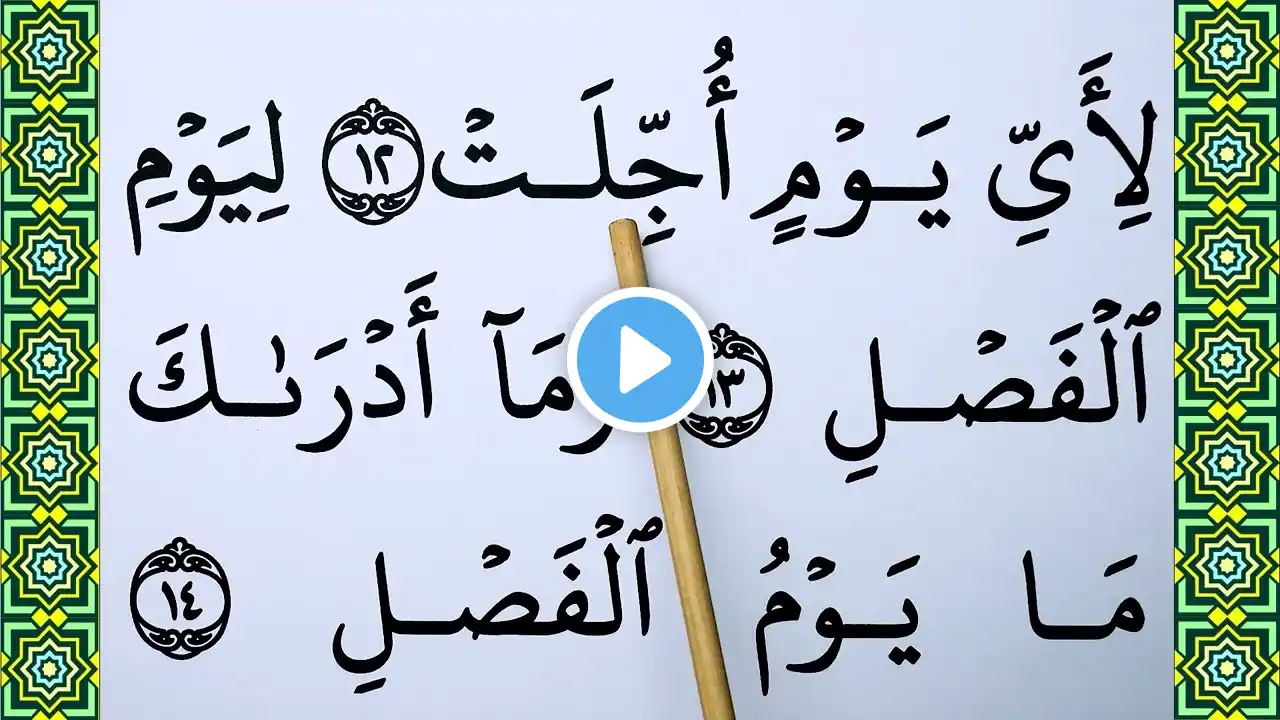 لِأَيِّ يَوۡمٍ أُجِّلَتۡ ١٢ لِيَوۡمِ
ٱلۡفَصۡلِ ١٣ وَمَآ أَدۡرَىٰكَ
مَا يَوۡمُ ٱلۡفَصۡلِ ١٤